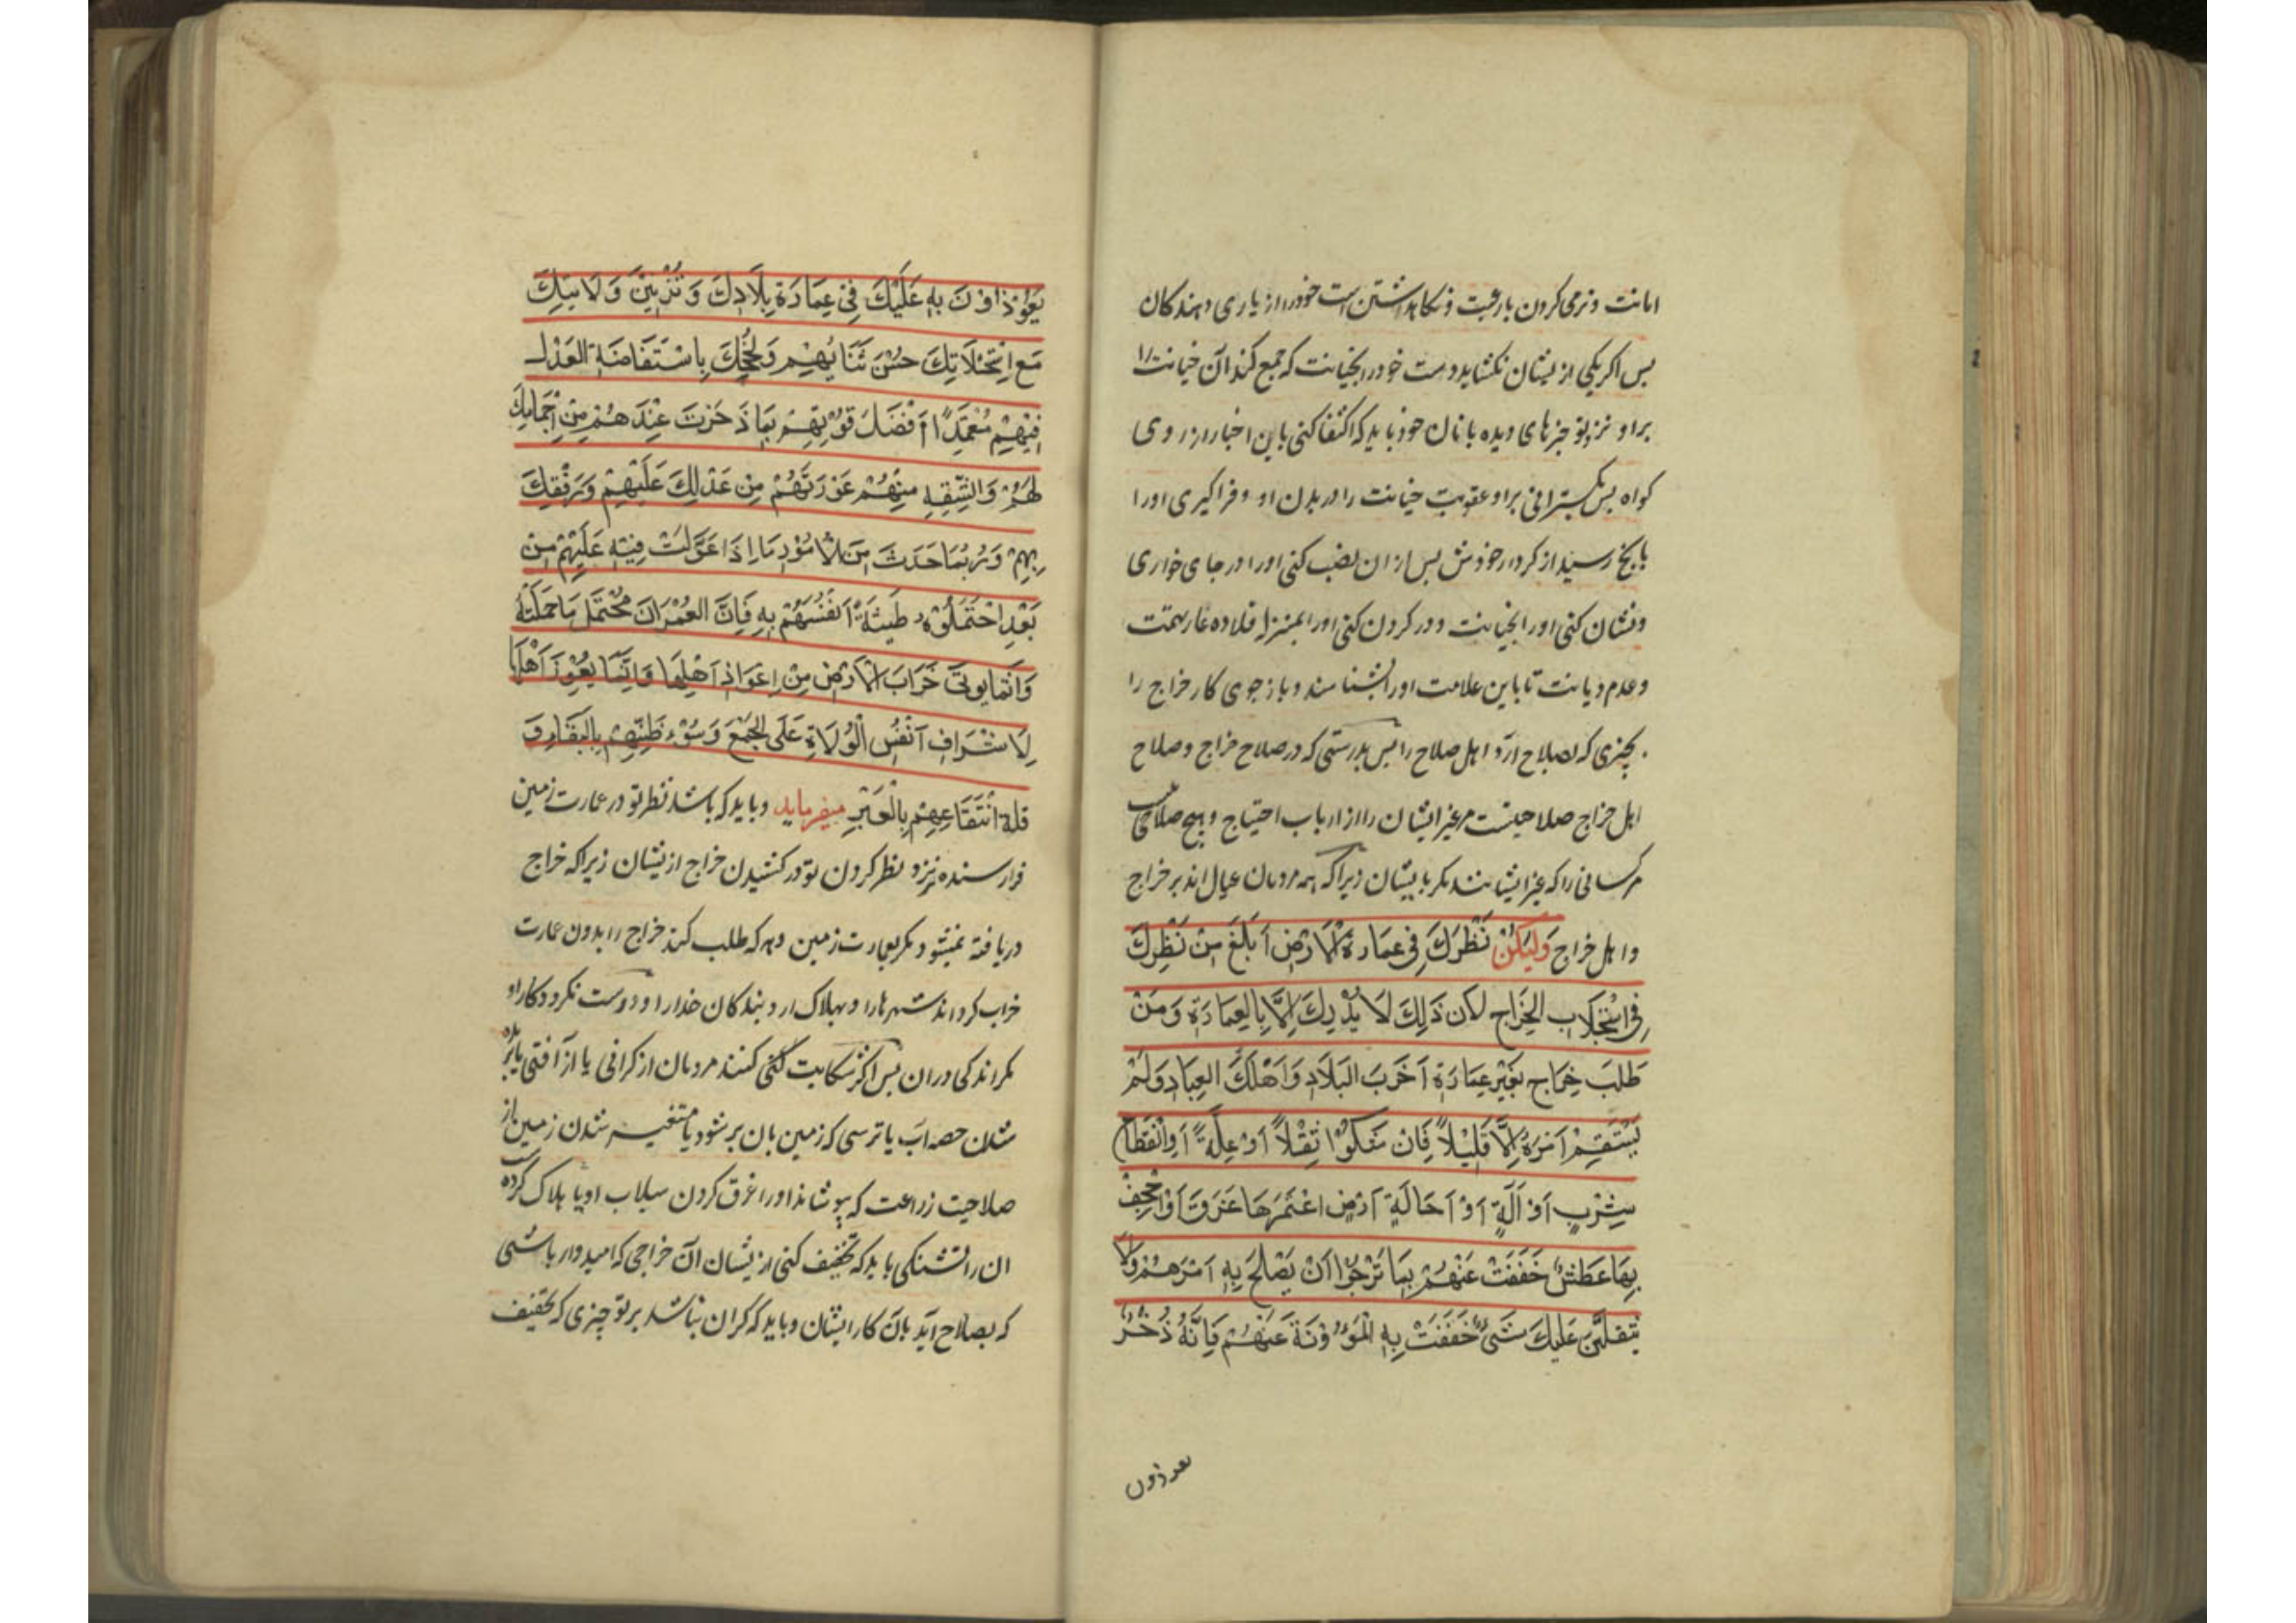 امانت و نرمی کردن با رعیت و نکاهداشتن است خود را از یاری دهندکان
بس اکر یکی از یشان نکشاید دست خود را بخیانت که جمع کند آن خیانت را
براو نزد تو خبرهای دیده بانان خود باید که اکتفا کنی باین اخبار از روی
کواه بس بکسترانی براو عقوبت خیانت را در بدن او و فراکیری او را
بانچ رسید از کردار خودش بس از ان نصب کنی او را در جای خواری
و نشان کنی او را بخیانت و در کردن کنی او را بمنزله قلاده عار تهمت
و عدم دیانت تا باین علامت او را بشناسند و باز جوی کار خراج را
بچیزی که بصلاح ارد اهل صلاح را بس بدرستی که در صلاح خراج و صلاح
اهل خراج صلاحیست مر غیر ایشان را از ارباب احتیاج و هیچ صلاحی نیست
مر کسانی را که غیر ایشانند مکر بایشان زیرا که همه مردمان عیال اند بر خراج
و اهل خراج وَلْیَکُنْ نَظَرَكَ فِی عِمَارَةِ الْاَرْضِ اَبْلَغَ مِنْ نَظَرِكَ
فِی اسْتِجْلَابِ الخَرَاجِ لان ذَلِكَ لَا یُدْرِكَ اِلَّا بِالعِمَارَةِ وَمَنْ
طَلَبَ خِرَاج بِغَیْرِ عِمَارَةٍ اَخْرَبَ البَلَادِ وَاَهْلَكَ العِبَادِ وَلَمْ
یَسْتَقِمْ اَمْرَهُ اِلَّا قَلِیْلاً فَاِنْ شَکَوْا ثِقْلاً اَوْ عِلَّةً اَوِانْقِطَاعَ
شِرْبٍ اَوْ اَلَّةٍ اَوْ اَحَالَةِ اَرْضٍ اغْتَمَرَهَا غَرَقَ اَوْ اَجْحَفَ
بِهَا عَطَشُ خَفَفْتَ عَنْهُمْ بِمَا تَرْجُوْا اَنْ یَصْلَحَ بِهِ اَمْرَهُمْ وَلَا
یَثقُلَنَّ عَلَیكَ شَیْ خَفَفْتَ بِهِ الْمَؤُوْنَةَ عَنْهُمْ فَاِنَّهُ ذُخْرُ
یعوذون
یَعُوْذُوْنَ بِهِ عَلَیْكَ فِیْ عِمَارَةِ بِلَادِكَ وَ تَزْیِیْنَ وَلَایَتِكَ
مَعَ اسْتِجْلَابِكَ حُسْنَ ثَنَائِهِمْ وَ تَبَجُّحِكَ بِاسْتَفَاضَةِ العَدْلِ
فِیْهِمْ مُعْتَمِدًا اَفْضَلَ قُوَّتِهِمْ بِمَا ذَخَرْتَ عِنْدَهُمْ مِنْ اِجْمَامِكَ
لَهُمْ وَالثِّقَةِ مِنْهُمْ عَوَّدْتَهُمْ مِنْ عَدْلِكَ عَلَیْهِمْ وَ رِفْقِكَ
بِهِمْ وَ رُبَّمَا حَدَثَ مِنَ الْاُمُوْرِ مَا اِذَا عَوَّلَتْ فِیْهِ عَلَیْهِمْ مِنْ
بَعْدِ احْتَمَلُوْهُ طَیِّبَةً اَنْفُسَهُمْ بِهِ فَاِنَّ العُمْرَانَ مُحْتَمَل مَا حَمَلْتَهُ
وَ اِنَّمَا یُوتَی خَرَابَ الْاَرْضِ مِنْ اِعْوَاذِ اَهْلِهَا وَاِنَّمَا یُعْوِزُ اَهْلُهَا
لِاَشْرَافِ اَنْفُسِ الْوُلَاةِ عَلَی الجَمْعِ وَ سُوْءِ ظَنِّهِمْ بِالبَقَاءِ وَ
قلة اَنْتِفَاعِهِمْ بِالْعِبَرِ میفرماید و باید که باشد نظر تو در عمارت زمین
فرارسنده تر نزد نظر کردن تو در کشیدن خراج از یشان زیرا که خراج
دریافته نمیشود مکر بعمارت زمین و هر که طلب کند خراج را بدون عمارت
خراب کرداند شهرها را و بهلاک ارد بندکان خدا را و درست نکردد کار او
مکر اندکی دران بس اکر شکایت کنند مردمان از کرانی یا از آفتی یا بریده
شدن حصه آب یا ترسی که زمین بان بر شود یا متغیر شدن زمین از
صلاحیت زراعت که بپوشاند او را غرق کردن سیلاب او یا هلاک کرده
ان را تشنکی باید که تخفیف کنی از یشان آن خراجی که امیدوار باشی
که بصلاح آید بان کار ایشان و باید که کران نباشد بر تو چیزی که تخفیف